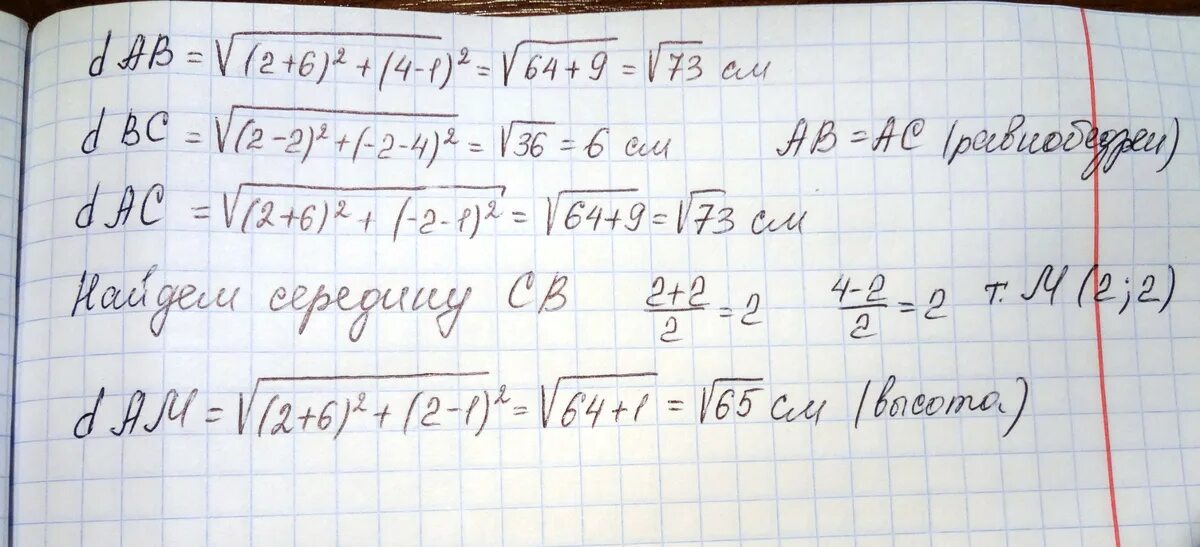 d AB = √((2+6)² + (4-1)²) = √(64+9) = √73 см
d BC = √((2-2)² + (-2-4)²) = √36 = 6 см AB = AC (равнобедрен)
d AC = √((2+6)² + (-2-1)²) = √(64+9) = √73 см
Найдем середину CB (2+2)/2 = 2 (4-2)/2 = 2 т. M (2;2)
d AM = √((2+6)² + (2-1)²) = √(64+1) = √65 см (высота)